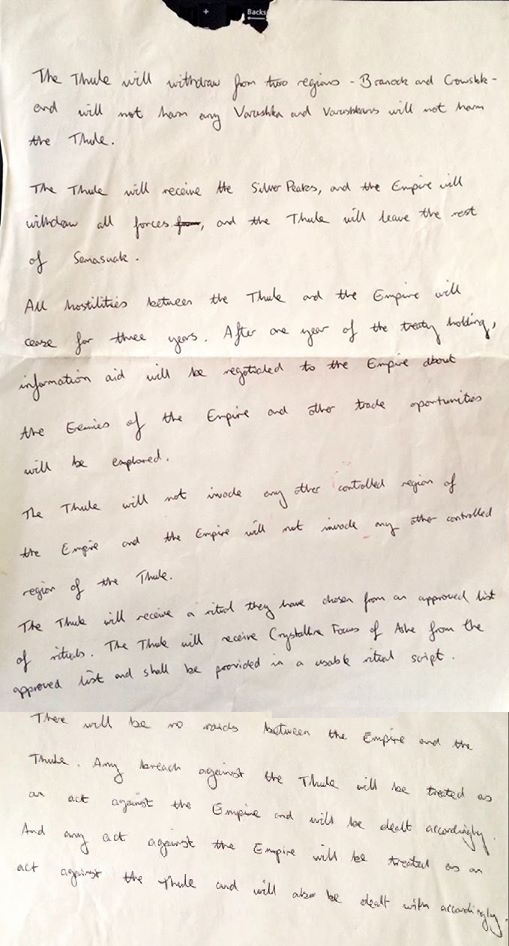 + Backs
The Thule will withdraw from two regions - Branock and Crowslik -
and will not harm any Varushka and Varushkans will not harm
the Thule.
The Thule will receive the Silver Peaks, and the Empire will
withdraw all forces from, and the Thule will leave the rest
of Semasuak.
All hostilities between the Thule and the Empire will
cease for three years. After one year of the treaty holding,
information aid will be negotiated to the Empire about
the Enemies of the Empire and other trade oportunities
will be explored.
The Thule will not invade any other controlled region of
the Empire and the Empire will not invade any other controlled
region of the Thule.
The Thule will receive a ritual they have chosen from an approved list
of rituals. The Thule will receive Crystalline Focus of Ashe from the
approved list and shall be provided in a usable ritual script.
There will be no raids between the Empire and the
Thule. Any breach against the Thule will be treated as
an act against the Empire and will be dealt accordingly.
And any act against the Empire will be treated as an
act against the Thule and will also be dealt with accordingly.